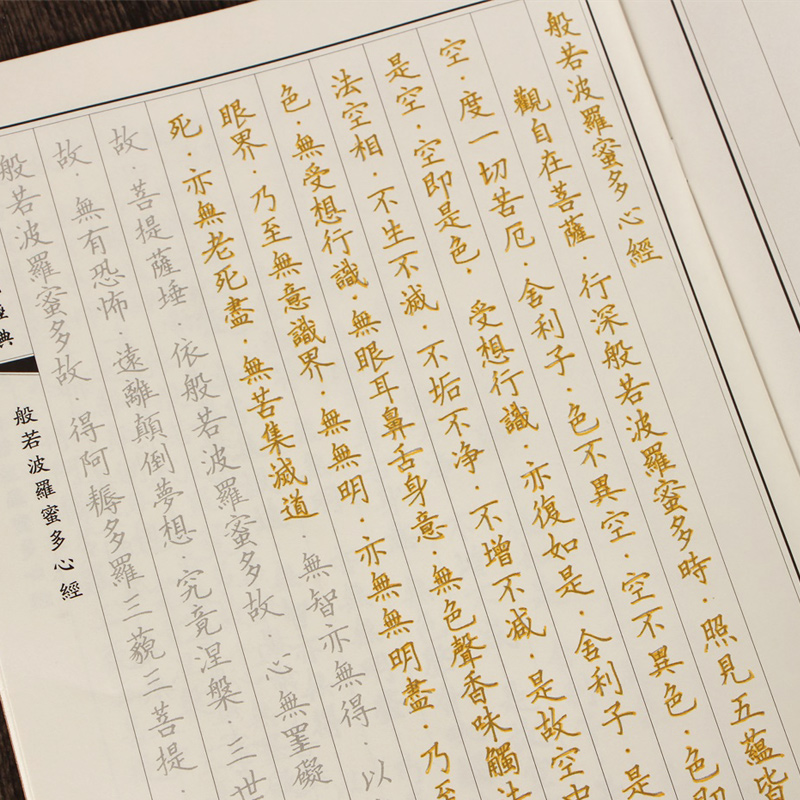 般若波羅蜜多心經
觀自在菩薩·行深般若波羅蜜多時·照見五蘊皆
空·度一切苦厄·舍利子·色不異空·空不異色·色即
是空·空即是色·受想行識·亦復如是·舍利子·是
法空相·不生不滅·不垢不净·不增不减·是故空中
色·無受想行識·無眼耳鼻舌身意·無色聲香味觸法
眼界·乃至無意識界·無無明·亦無無明盡·乃至
死·亦無老死盡·無苦集滅道·無智亦無得·以
故·菩提薩埵·依般若波羅蜜多故·心無罣礙
故·無有恐怖·遠離顛倒夢想·究竟涅槃·三世
般若波羅蜜多故·得阿耨多羅三藐三菩提·
典
般若波羅蜜多心經